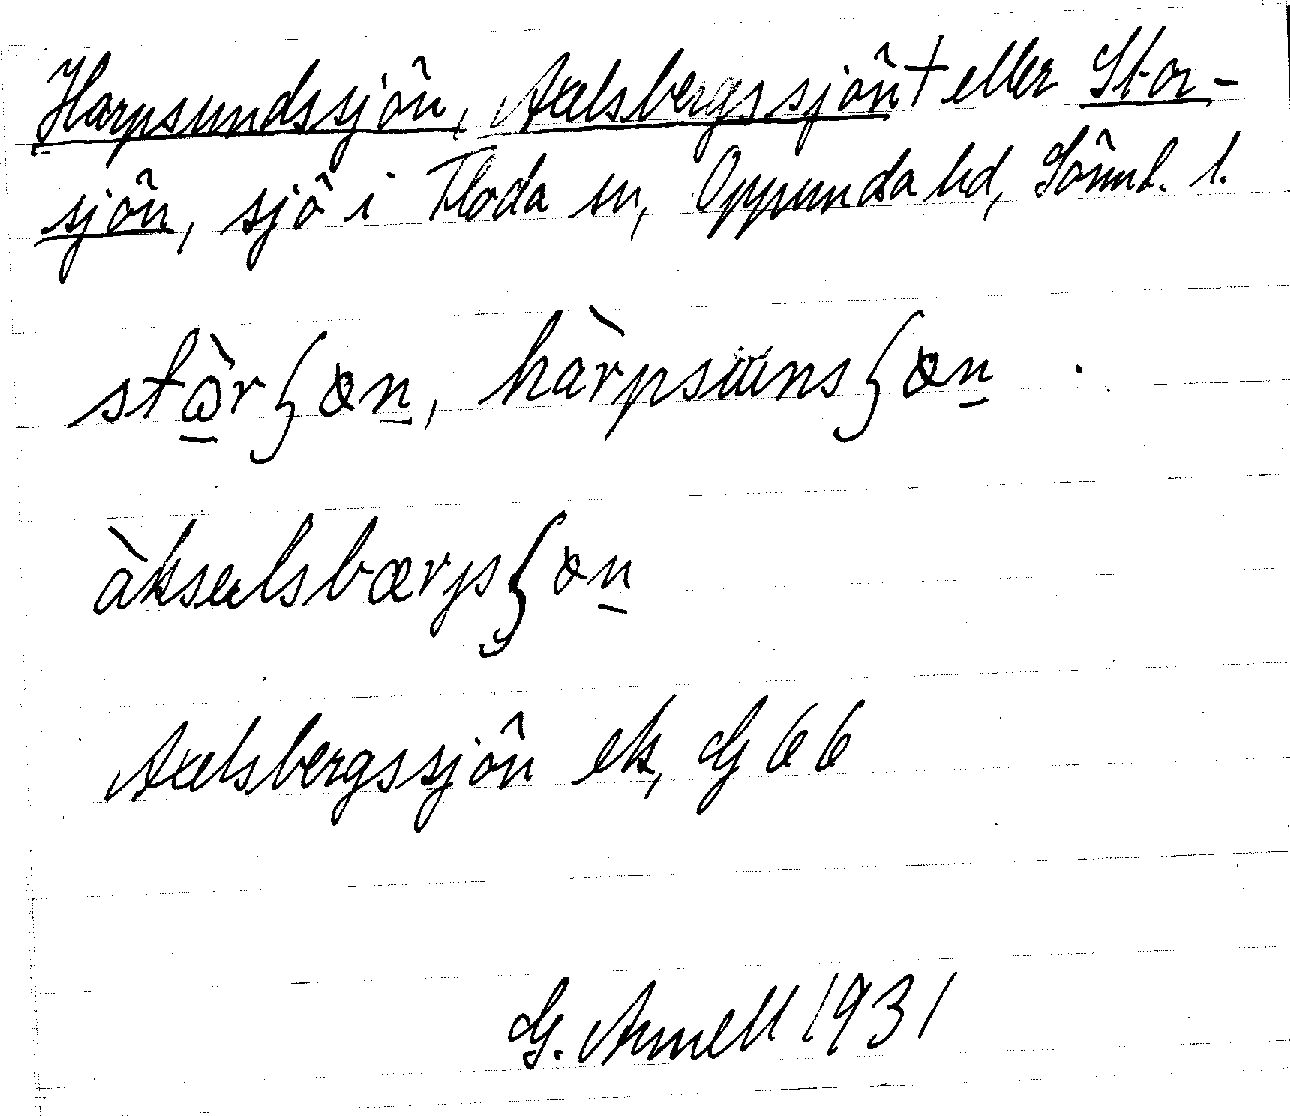 Harpsundssjön, Axelsbergssjön† eller Stor-
sjön, sjö i Floda sn, Oppunda hd, Sörml. l.
stò̱rʃøṉ, hàrpsunsʃøṉ.
àkselsbærjsʃøṉ
Axelsbergssjön ek, G 66
G. Arnell 1931